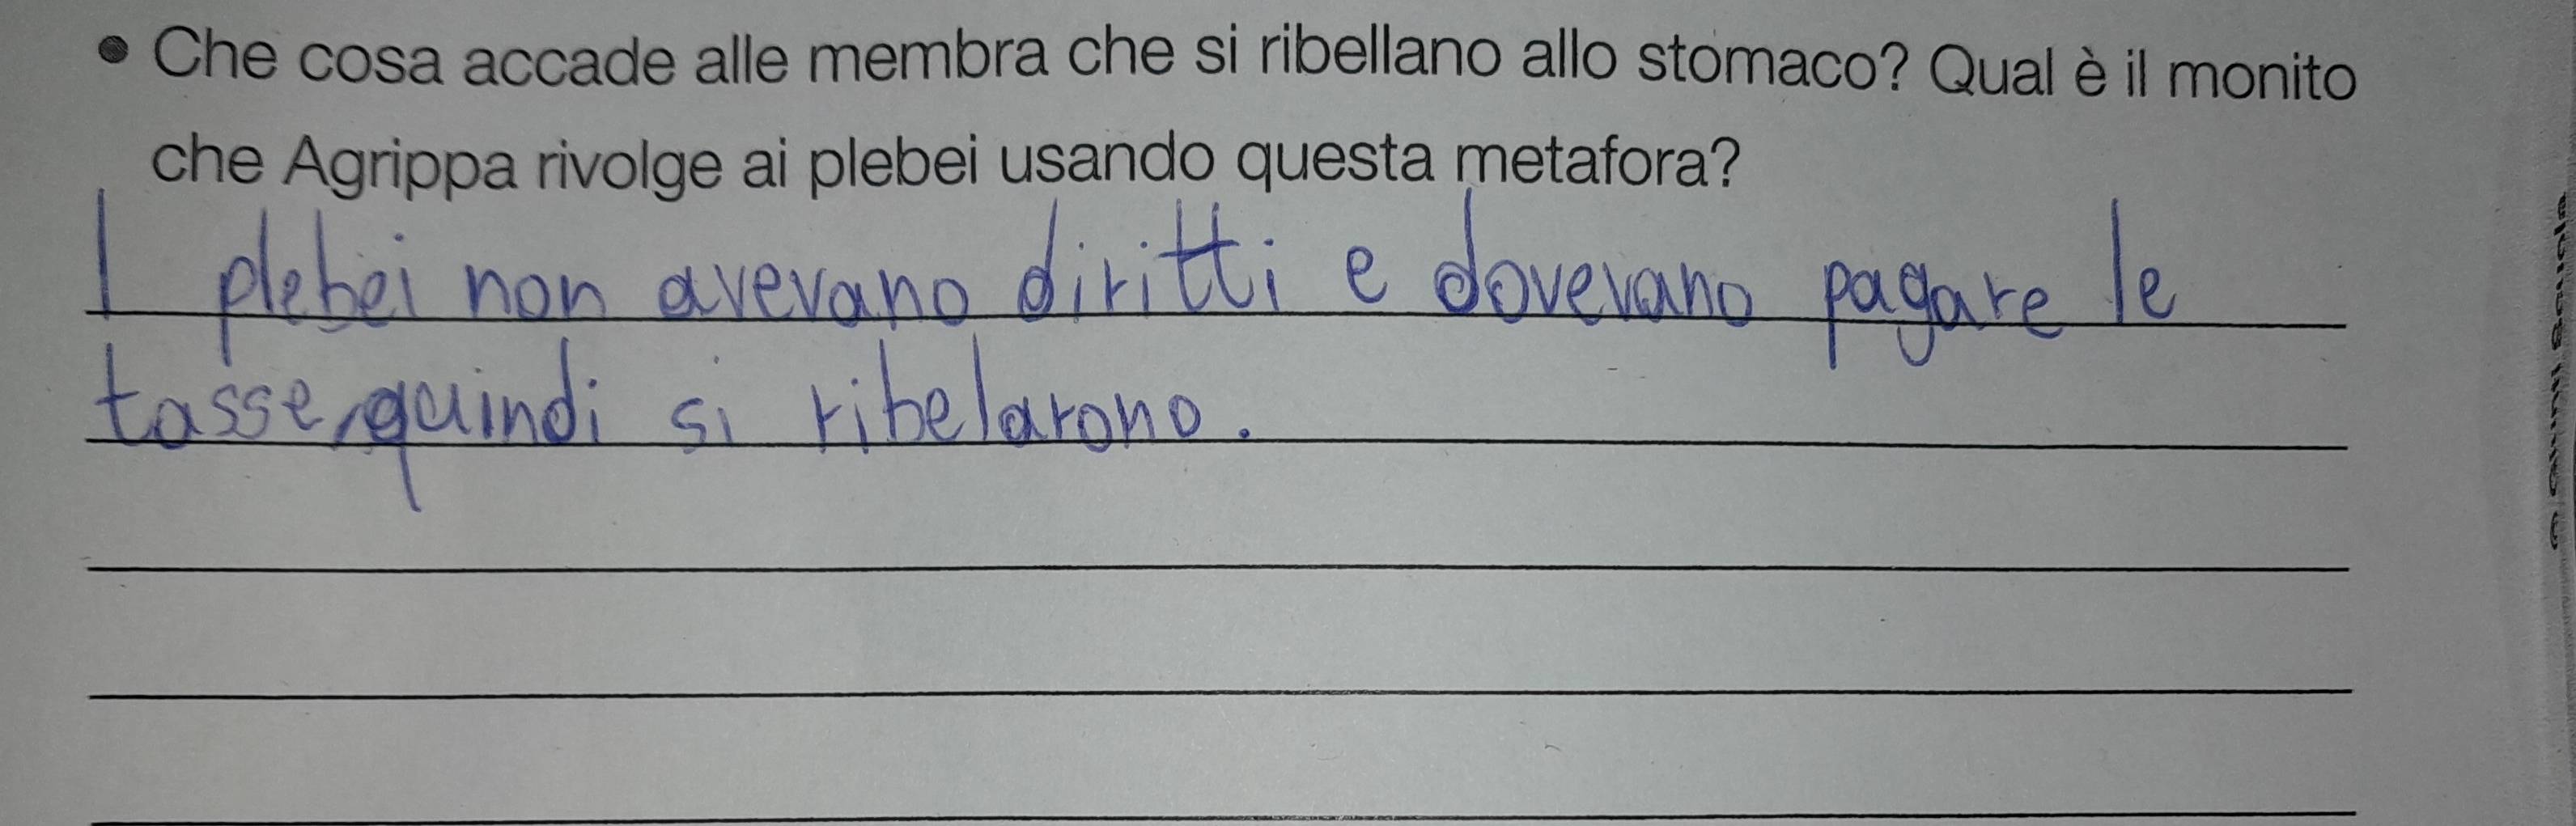 • Che cosa accade alle membra che si ribellano allo stomaco? Qual è il monito
che Agrippa rivolge ai plebei usando questa metafora?
I plebei non avevano diritti e dovevano pagare le
tasse, quindi si ribelarono.